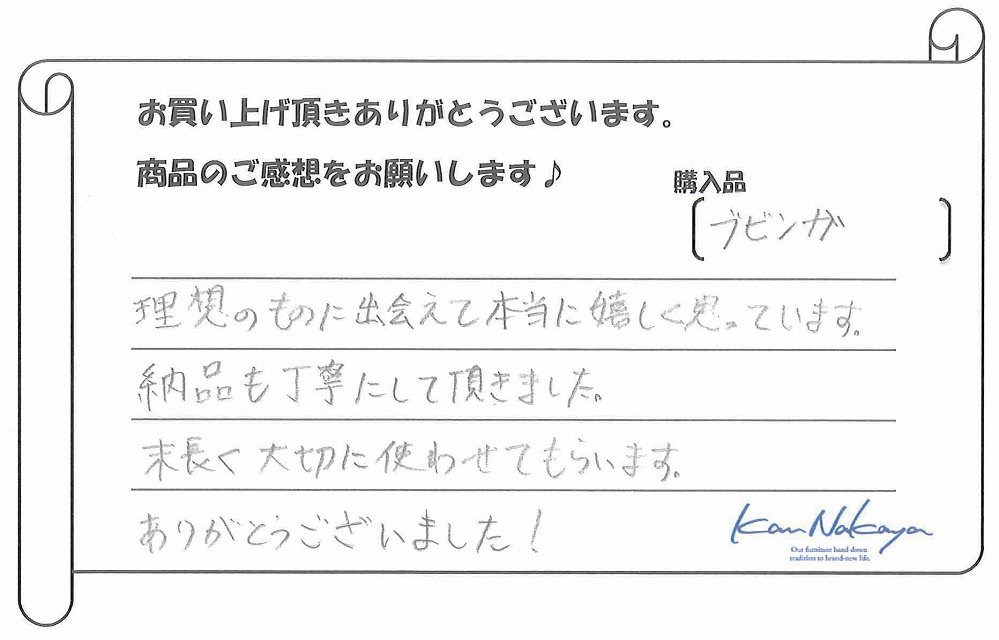 お買い上げ頂きありがとうございます。
商品のご感想をお願いします♪
購入品
〔ブビンガ〕
理想のものに出会えて本当に嬉しく思っています。
納品も丁寧にして頂きました。
末長く大切に使わせてもらいます。
ありがとうございました！
KanNakaya
Our furniture hand down
tradition to brand-new life.